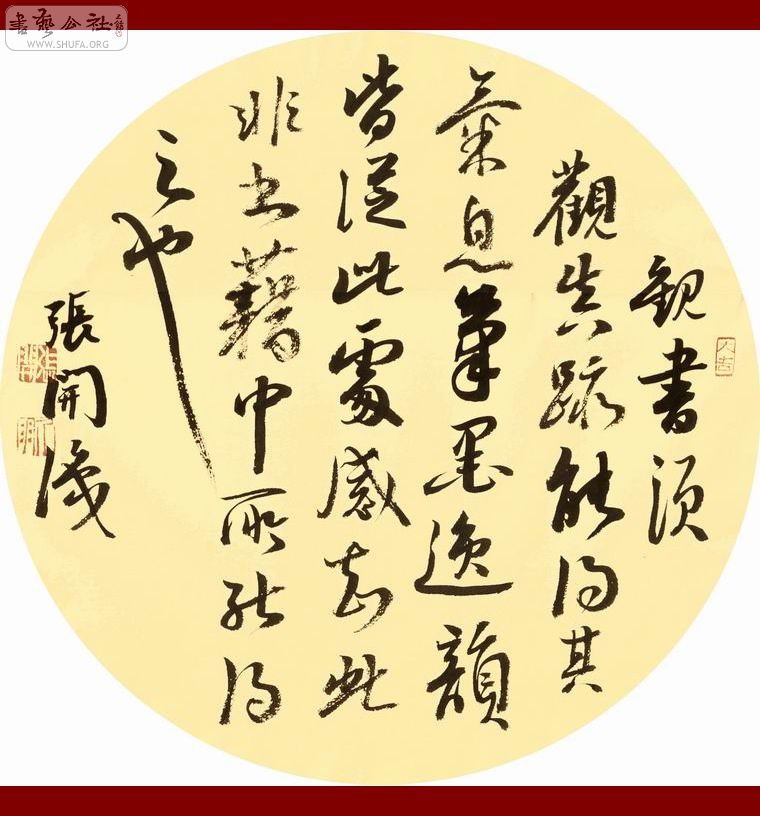 書藝公社
WWW.SHUFA.ORG
觀書須
觀真跡能得其
氣息筆墨逸韻
皆從此處感知此
非書藉中所能得
之也
張開